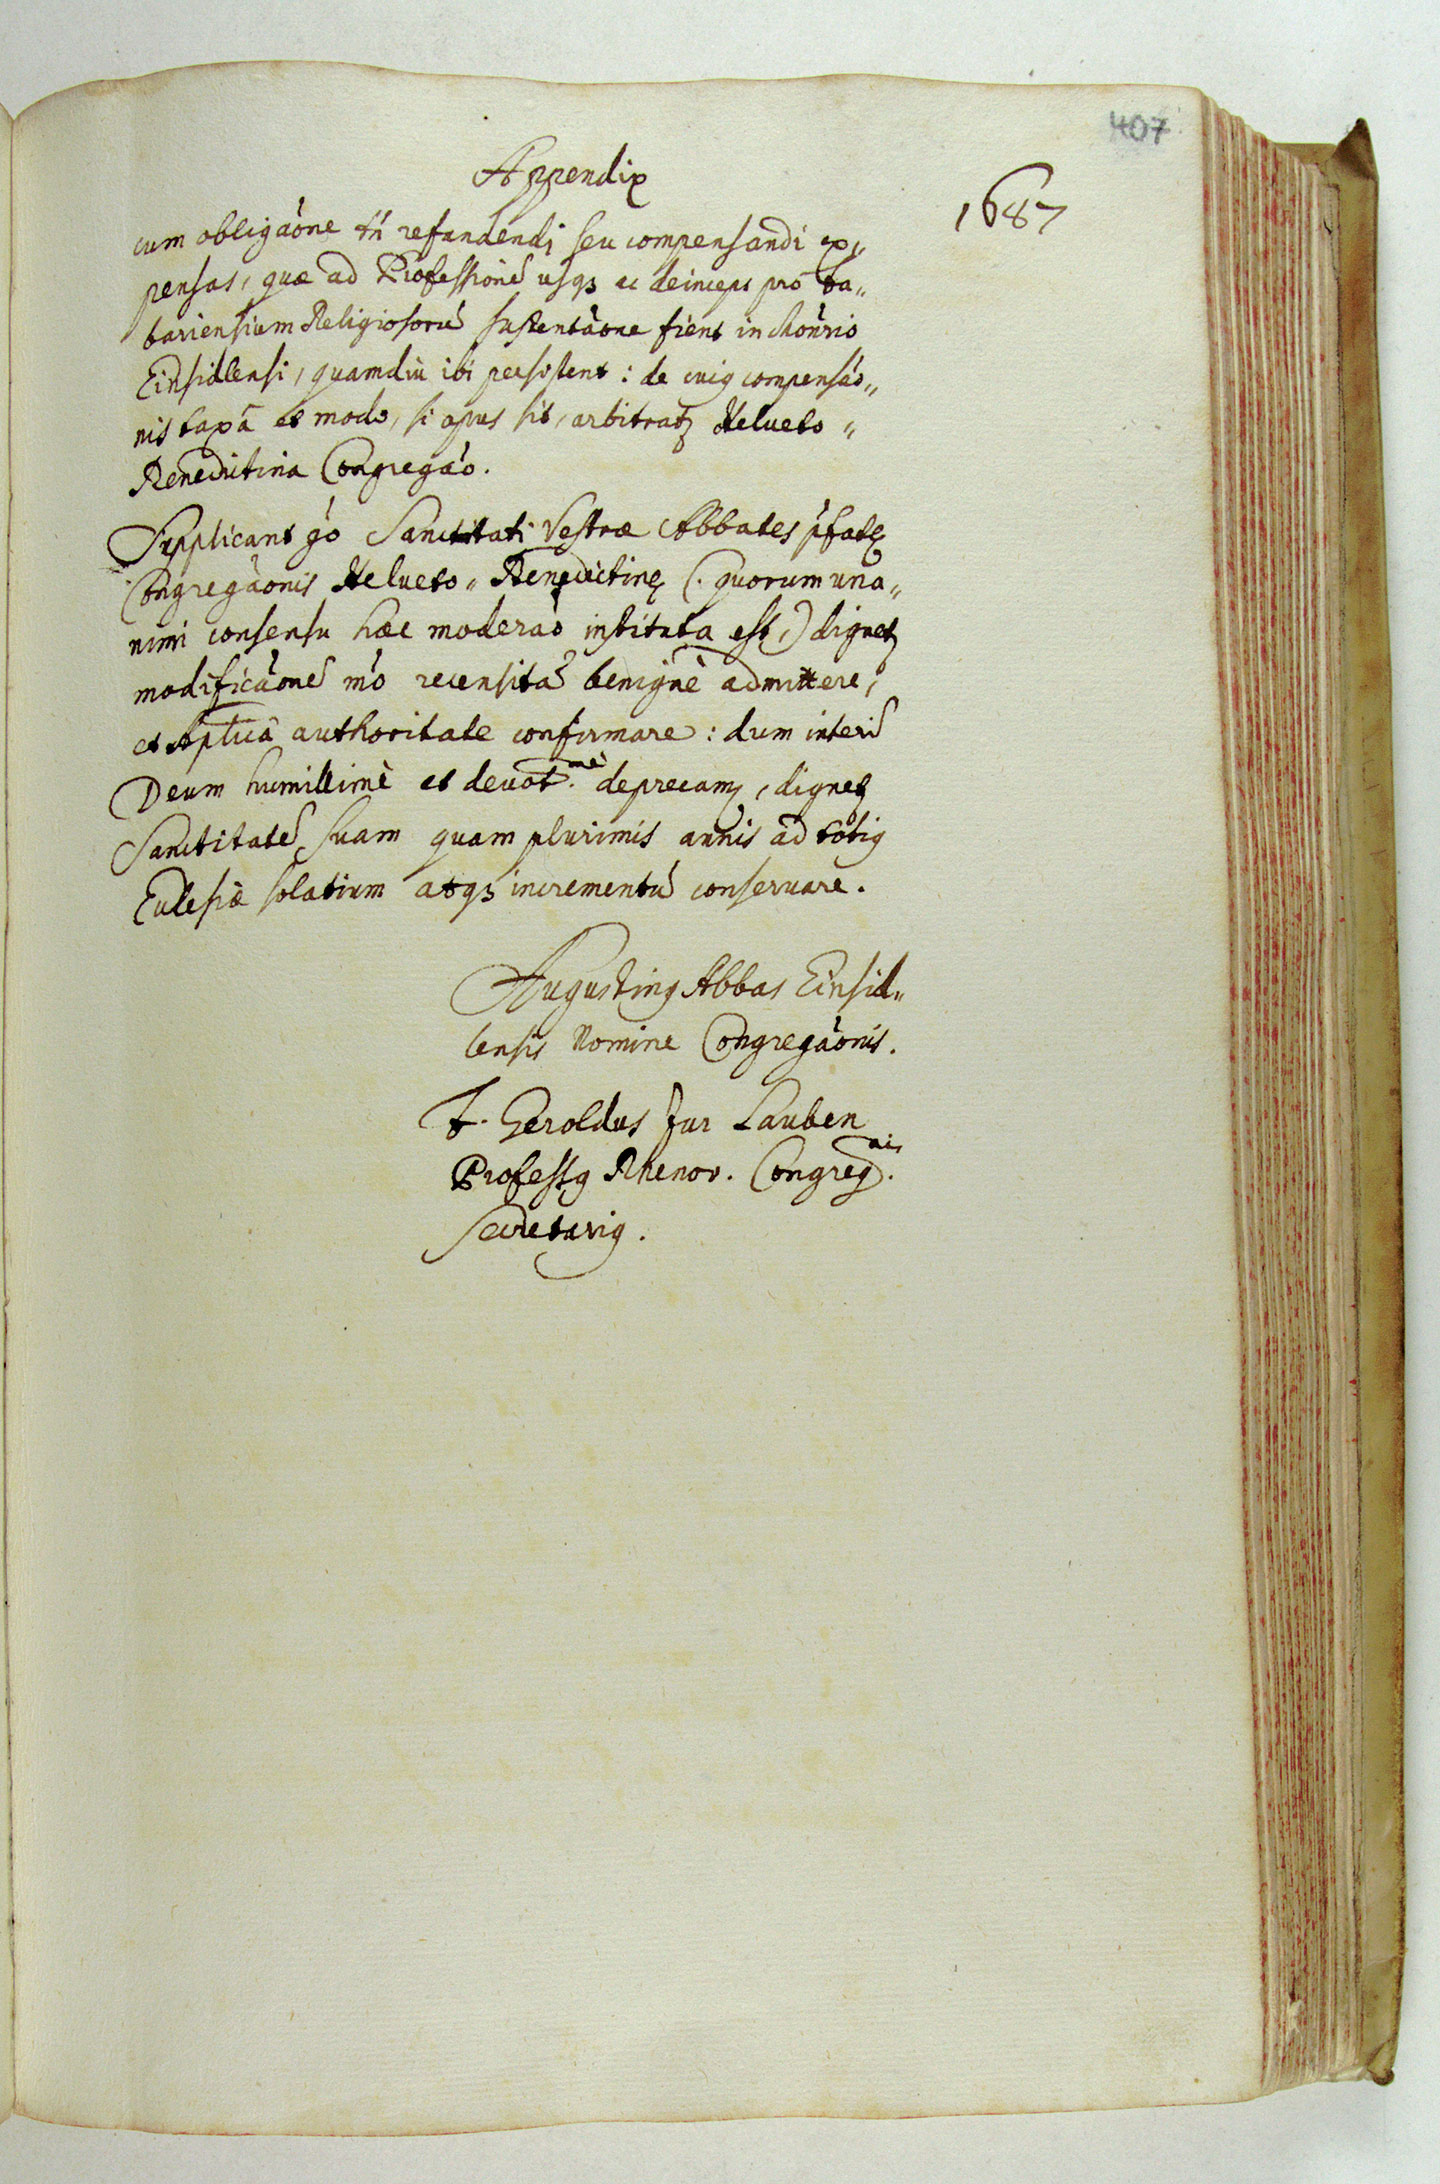 407
Appendix
1687
cum obligaône tn̄ refundendi seu compensandi ex„
pensas, quæ ad Professionē usqꝫ ac deinceps pro Fa„
bariensium Religiosorū sustentaône fient in Monrio
Einsidlensi, quamdiu ibi persistent: de cuiꝰ compensâo„
nis taxâ et modo, si opus sit, arbitratꝛ Helueto„
Benedictina Congregâo.
Supplicant gô Sanctitati Vestræ Abbates pfatę
Congregâonis Helueto„ Benedictinę (. quorum una„
nimi consensu hæc moderâo instituta est,) dignetꝛ
modificâonē mô recensitā benignè admittere,
et Aplicâ authoritate confirmare: dum interī
Deum humillimè et devot.mè deprecamꝛ, dignetꝛ
Sanctitatē suam quam plurimis annis ad totiꝰ
Eclesiæ solatium atqꝫ incrementū conseruare.
Augustinꝰ Abbas Einsid„
lensis Nomine Congregâonis.
F. Geroldus Zur Lauben
Professꝰ Rhenov. Congreg.nis
Secretariꝰ.